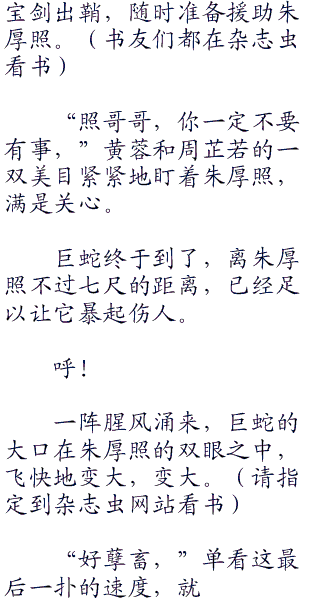 宝剑出鞘，随时准备援助朱
厚照。（书友们都在杂志虫
看书）
“照哥哥，你一定不要
有事，”黄蓉和周芷若的一
双美目紧紧地盯着朱厚照，
满是关心。
巨蛇终于到了，离朱厚
照不过七尺的距离，已经足
以让它暴起伤人。
呼！
一阵腥风涌来，巨蛇的
大口在朱厚照的双眼之中，
飞快地变大，变大。（请指
定到杂志虫网站看书）
“好孽畜，”单看这最
后一扑的速度，就